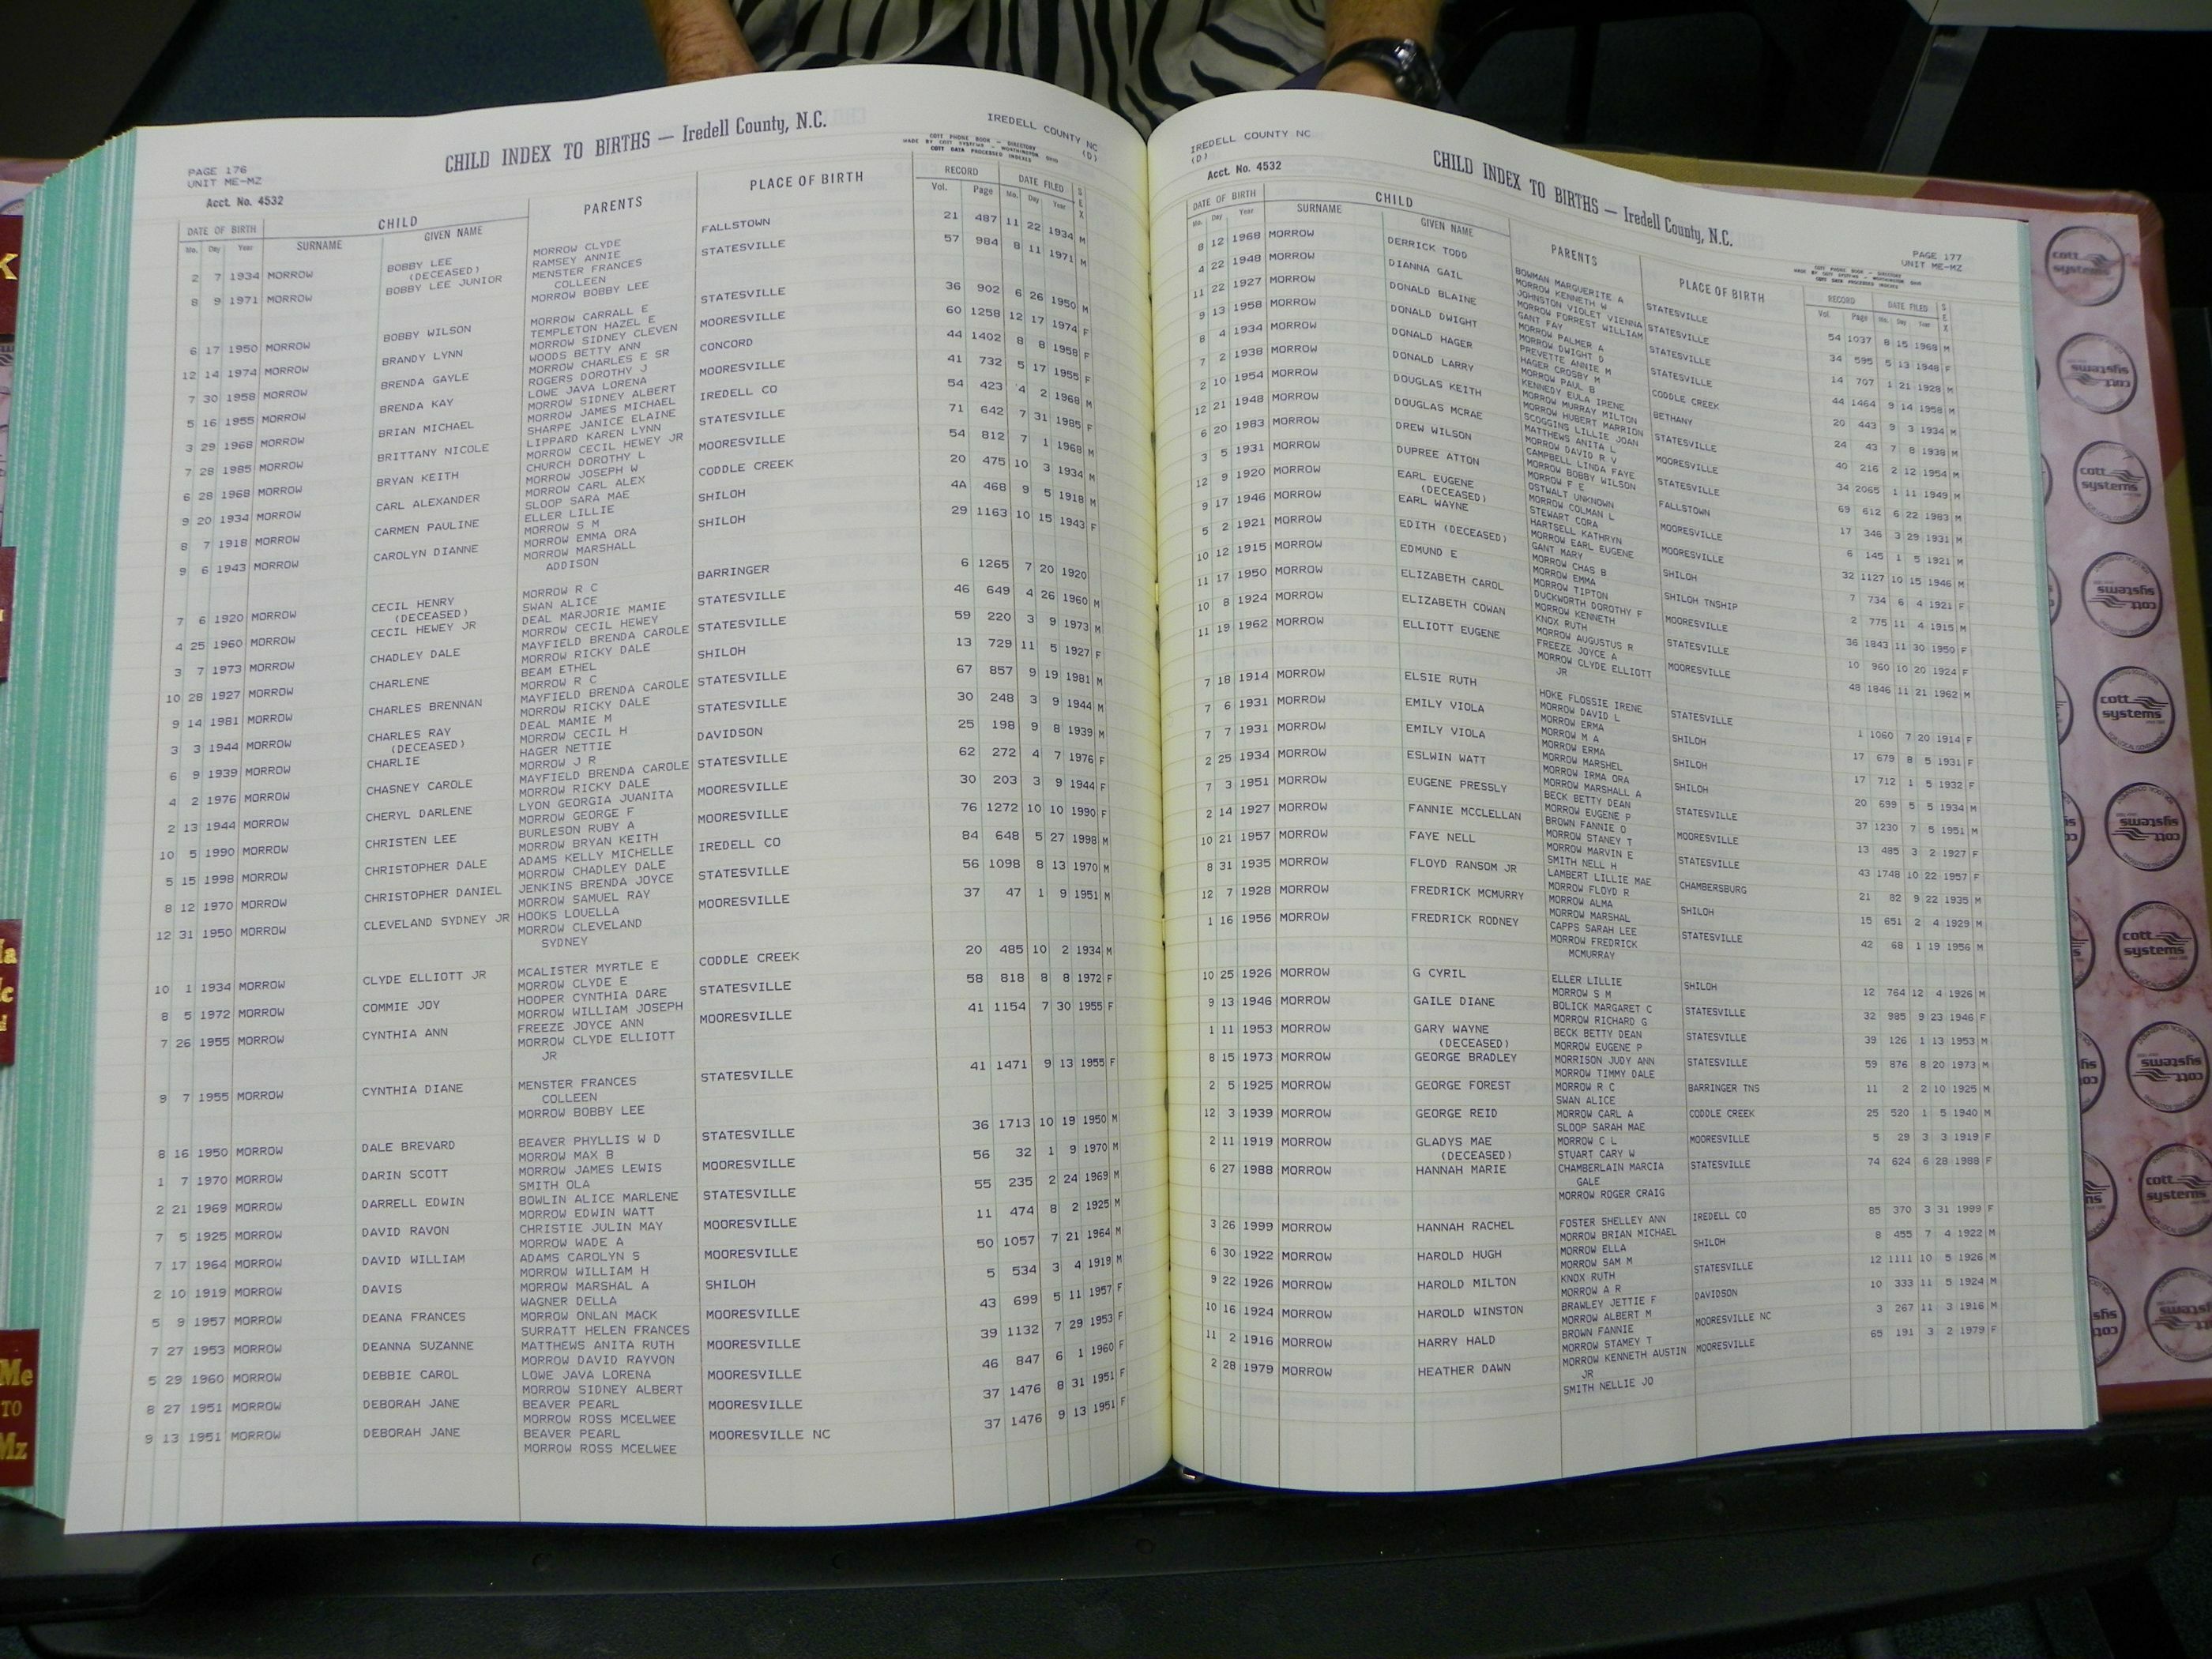 CHILD INDEX TO BIRTHS — Iredell County, N.C.
IREDELL COUNTY NC
(D)
PAGE 176
UNIT ME-MZ
COTT PHONE BOOK - DIRECTORY
MADE BY COTT SYSTEMS - WORTHINGTON OHIO
COTT DATA PROCESSED INDEXES
Acct. No. 4532
DATE OF BIRTH CHILD PARENTS PLACE OF BIRTH RECORD DATE FILED SEX
Mo. Day Year SURNAME GIVEN NAME Vol. Page Mo. Day Year
2 7 1934 MORROW BOBBY LEE MORROW CLYDE FALLSTOWN 21 487 11 22 1934 M
(DECEASED) RAMSEY ANNIE
8 9 1971 MORROW BOBBY LEE JUNIOR MENSTER FRANCES STATESVILLE 57 984 8 11 1971 M
COLLEEN
MORROW BOBBY LEE
6 17 1950 MORROW BOBBY WILSON MORROW CARRALL E STATESVILLE 36 902 6 26 1950 M
TEMPLETON HAZEL E
12 14 1974 MORROW BRANDY LYNN MORROW SIDNEY CLEVEN MOORESVILLE 60 1258 12 17 1974 F
WOODS BETTY ANN
7 30 1958 MORROW BRENDA GAYLE MORROW CHARLES E SR CONCORD 44 1402 8 8 1958 F
ROGERS DOROTHY J
5 16 1955 MORROW BRENDA KAY LOWE JAVA LORENA MOORESVILLE 41 732 5 17 1955 F
MORROW SIDNEY ALBERT
3 29 1968 MORROW BRIAN MICHAEL MORROW JAMES MICHAEL IREDELL CO 54 423 4 2 1968 M
SHARPE JANICE ELAINE
7 28 1985 MORROW BRITTANY NICOLE LIPPARD KAREN LYNN STATESVILLE 71 642 7 31 1985 F
MORROW CECIL HEWEY JR
6 28 1968 MORROW BRYAN KEITH CHURCH DOROTHY L MOORESVILLE 54 812 7 1 1968 M
MORROW JOSEPH W
9 20 1934 MORROW CARL ALEXANDER MORROW CARL ALEX CODDLE CREEK 20 475 10 3 1934 M
SLOOP SARA MAE
8 7 1918 MORROW CARMEN PAULINE ELLER LILLIE SHILOH 4A 468 9 5 1918 M
MORROW S M
9 6 1943 MORROW CAROLYN DIANNE MORROW EMMA ORA SHILOH 29 1163 10 15 1943 F
MORROW MARSHALL
ADDISON
7 6 1920 MORROW CECIL HENRY MORROW R C BARRINGER 6 1265 7 20 1920
(DECEASED) SWAN ALICE
4 25 1960 MORROW CECIL HEWEY JR DEAL MARJORIE MAMIE STATESVILLE 46 649 4 26 1960 M
MORROW CECIL HEWEY
3 7 1973 MORROW CHADLEY DALE MAYFIELD BRENDA CAROLE STATESVILLE 59 220 3 9 1973 M
MORROW RICKY DALE
10 28 1927 MORROW CHARLENE BEAM ETHEL SHILOH 13 729 11 5 1927 F
MORROW R C
9 14 1981 MORROW CHARLES BRENNAN MAYFIELD BRENDA CAROLE STATESVILLE 67 857 9 19 1981 M
MORROW RICKY DALE
3 3 1944 MORROW CHARLES RAY DEAL MAMIE M STATESVILLE 30 248 3 9 1944 M
(DECEASED) MORROW CECIL H
6 9 1939 MORROW CHARLIE HAGER NETTIE DAVIDSON 25 198 9 8 1939 M
MORROW J R
4 2 1976 MORROW CHASNEY CAROLE MAYFIELD BRENDA CAROLE STATESVILLE 62 272 4 7 1976 F
MORROW RICKY DALE
2 13 1944 MORROW CHERYL DARLENE LYON GEORGIA JUANITA MOORESVILLE 30 203 3 9 1944 F
MORROW GEORGE F
10 5 1990 MORROW CHRISTEN LEE BURLESON RUBY A MOORESVILLE 76 1272 10 10 1990 F
MORROW BRYAN KEITH
5 15 1998 MORROW CHRISTOPHER DALE ADAMS KELLY MICHELLE IREDELL CO 84 648 5 27 1998 M
MORROW CHADLEY DALE
8 12 1970 MORROW CHRISTOPHER DANIEL JENKINS BRENDA JOYCE STATESVILLE 56 1098 8 13 1970 M
MORROW SAMUEL RAY
12 31 1950 MORROW CLEVELAND SYDNEY JR HOOKS LOUELLA MOORESVILLE 37 47 1 9 1951 M
MORROW CLEVELAND
SYDNEY
10 1 1934 MORROW CLYDE ELLIOTT JR MCALISTER MYRTLE E CODDLE CREEK 20 485 10 2 1934 M
MORROW CLYDE E
8 5 1972 MORROW COMMIE JOY HOOPER CYNTHIA DARE STATESVILLE 58 818 8 8 1972 F
MORROW WILLIAM JOSEPH
7 26 1955 MORROW CYNTHIA ANN FREEZE JOYCE ANN MOORESVILLE 41 1154 7 30 1955 F
MORROW CLYDE ELLIOTT
JR
9 7 1955 MORROW CYNTHIA DIANE MENSTER FRANCES STATESVILLE 41 1471 9 13 1955 F
COLLEEN
MORROW BOBBY LEE
8 16 1950 MORROW DALE BREVARD BEAVER PHYLLIS W D STATESVILLE 36 1713 10 19 1950 M
MORROW MAX B
1 7 1970 MORROW DARIN SCOTT MORROW JAMES LEWIS MOORESVILLE 56 32 1 9 1970 M
SMITH OLA
2 21 1969 MORROW DARRELL EDWIN BOWLIN ALICE MARLENE STATESVILLE 55 235 2 24 1969 M
MORROW EDWIN WATT
7 5 1925 MORROW DAVID RAVON CHRISTIE JULIN MAY MOORESVILLE 11 474 8 2 1925 M
MORROW WADE A
7 17 1964 MORROW DAVID WILLIAM ADAMS CAROLYN S MOORESVILLE 50 1057 7 21 1964 M
MORROW WILLIAM H
2 10 1919 MORROW DAVIS MORROW MARSHAL A SHILOH 5 534 3 4 1919 M
WAGNER DELLA
5 9 1957 MORROW DEANA FRANCES MORROW ONLAN MACK MOORESVILLE 43 699 5 11 1957 F
SURRATT HELEN FRANCES
7 27 1953 MORROW DEANNA SUZANNE MATTHEWS ANITA RUTH MOORESVILLE 39 1132 7 29 1953 F
MORROW DAVID RAYVON
5 29 1960 MORROW DEBBIE CAROL LOWE JAVA LORENA MOORESVILLE 46 847 6 1 1960 F
MORROW SIDNEY ALBERT
8 27 1951 MORROW DEBORAH JANE BEAVER PEARL MOORESVILLE 37 1476 8 31 1951 F
MORROW ROSS MCELWEE
9 13 1951 MORROW DEBORAH JANE BEAVER PEARL MOORESVILLE NC 37 1476 9 13 1951 F
MORROW ROSS MCELWEE
IREDELL COUNTY NC
(D)
Acct. No. 4532
CHILD INDEX TO BIRTHS — Iredell County, N.C.
PAGE 177
UNIT ME-MZ
COTT PHONE BOOK - DIRECTORY
MADE BY COTT SYSTEMS - WORTHINGTON OHIO
COTT DATA PROCESSED INDEXES
DATE OF BIRTH CHILD PARENTS PLACE OF BIRTH RECORD DATE FILED SEX
Mo. Day Year SURNAME GIVEN NAME Vol. Page Mo. Day Year
8 12 1968 MORROW DERRICK TODD BOWMAN MARGUERITE A STATESVILLE 54 1037 8 15 1968 M
MORROW KENNETH W
4 22 1948 MORROW DIANNA GAIL JOHNSTON VIOLET VIENNA STATESVILLE 34 595 5 13 1948 F
MORROW FORREST WILLIAM
11 22 1927 MORROW DONALD BLAINE GANT FAY STATESVILLE 14 707 1 21 1928 M
MORROW PALMER A
9 13 1958 MORROW DONALD DWIGHT MORROW DWIGHT D STATESVILLE 44 1464 9 14 1958 M
PREVETTE ANNIE M
8 4 1934 MORROW DONALD HAGER HAGER CROSBY M CODDLE CREEK 20 443 9 3 1934 M
MORROW PAUL B
7 2 1938 MORROW DONALD LARRY KENNEDY EULA IRENE BETHANY 24 43 7 8 1938 M
MORROW MURRAY MILTON
2 10 1954 MORROW DOUGLAS KEITH MORROW HUBERT MARRION STATESVILLE 40 216 2 12 1954 M
SCOGGINS LILLIE JOAN
12 21 1948 MORROW DOUGLAS MCRAE MATTHEWS ANITA L MOORESVILLE 34 2065 1 11 1949 M
MORROW DAVID R V
6 20 1983 MORROW DREW WILSON CAMPBELL LINDA FAYE STATESVILLE 69 612 6 22 1983 M
MORROW BOBBY WILSON
3 5 1931 MORROW DUPREE ATTON MORROW F E FALLSTOWN 17 346 3 29 1931 M
OSTWALT UNKNOWN
12 9 1920 MORROW EARL EUGENE MORROW COLMAN L MOORESVILLE 6 145 1 5 1921 M
(DECEASED) STEWART CORA
9 17 1946 MORROW EARL WAYNE HARTSELL KATHRYN MOORESVILLE 32 1127 10 15 1946 M
MORROW EARL EUGENE
5 2 1921 MORROW EDITH (DECEASED) GANT MARY SHILOH 7 734 6 4 1921 F
MORROW CHAS B
10 12 1915 MORROW EDMUND E MORROW EMMA SHILOH TNSHIP 2 775 11 4 1915 M
MORROW TIPTON
11 17 1950 MORROW ELIZABETH CAROL DUCKWORTH DOROTHY F MOORESVILLE 36 1843 11 30 1950 F
MORROW KENNETH
10 8 1924 MORROW ELIZABETH COWAN KNOX RUTH STATESVILLE 10 960 10 20 1924 F
MORROW AUGUSTUS R
11 19 1962 MORROW ELLIOTT EUGENE FREEZE JOYCE A MOORESVILLE 48 1846 11 21 1962 M
MORROW CLYDE ELLIOTT
JR
7 18 1914 MORROW ELSIE RUTH HOKE FLOSSIE IRENE STATESVILLE 1 1060 7 20 1914 F
MORROW DAVID L
7 6 1931 MORROW EMILY VIOLA MORROW ERMA SHILOH 17 679 8 5 1931 F
MORROW M A
7 7 1931 MORROW EMILY VIOLA MORROW ERMA SHILOH 17 712 1 5 1932 F
MORROW MARSHEL
2 25 1934 MORROW ESLWIN WATT MORROW IRMA ORA SHILOH 20 699 5 5 1934 M
MORROW MARSHALL A
7 3 1951 MORROW EUGENE PRESSLY BECK BETTY DEAN STATESVILLE 37 1230 7 5 1951 M
MORROW EUGENE P
2 14 1927 MORROW FANNIE MCCLELLAN BROWN FANNIE O MOORESVILLE 13 485 3 2 1927 F
MORROW STANEY T
10 21 1957 MORROW FAYE NELL MORROW MARVIN E STATESVILLE 43 1748 10 22 1957 F
SMITH NELL H
8 31 1935 MORROW FLOYD RANSOM JR LAMBERT LILLIE MAE CHAMBERSBURG 21 82 9 22 1935 M
MORROW FLOYD R
12 7 1928 MORROW FREDRICK MCMURRY MORROW ALMA SHILOH 15 651 2 4 1929 M
MORROW MARSHAL
1 16 1956 MORROW FREDRICK RODNEY CAPPS SARAH LEE STATESVILLE 42 68 1 19 1956 M
MORROW FREDRICK
MCMURRAY
10 25 1926 MORROW G CYRIL ELLER LILLIE SHILOH 12 764 12 4 1926 M
MORROW S M
9 13 1946 MORROW GAILE DIANE BOLICK MARGARET C STATESVILLE 32 985 9 23 1946 F
MORROW RICHARD G
1 11 1953 MORROW GARY WAYNE BECK BETTY DEAN STATESVILLE 39 126 1 13 1953 M
(DECEASED) MORROW EUGENE P
8 15 1973 MORROW GEORGE BRADLEY MORRISON JUDY ANN STATESVILLE 59 876 8 20 1973 M
MORROW TIMMY DALE
2 5 1925 MORROW GEORGE FOREST MORROW R C BARRINGER TNS 11 2 2 10 1925 M
SWAN ALICE
12 3 1939 MORROW GEORGE REID MORROW CARL A CODDLE CREEK 25 520 1 5 1940 M
SLOOP SARAH MAE
2 11 1919 MORROW GLADYS MAE MORROW C L MOORESVILLE 5 29 3 3 1919 F
(DECEASED) STUART CARY W
6 27 1988 MORROW HANNAH MARIE CHAMBERLAIN MARCIA STATESVILLE 74 624 6 28 1988 F
GALE
MORROW ROGER CRAIG
3 26 1999 MORROW HANNAH RACHEL FOSTER SHELLEY ANN IREDELL CO 85 370 3 31 1999 F
MORROW BRIAN MICHAEL
6 30 1922 MORROW HAROLD HUGH MORROW ELLA SHILOH 8 455 7 4 1922 M
MORROW SAM M
9 22 1926 MORROW HAROLD MILTON KNOX RUTH STATESVILLE 12 1111 10 5 1926 M
MORROW A R
10 16 1924 MORROW HAROLD WINSTON BRAWLEY JETTIE F DAVIDSON 10 333 11 5 1924 M
MORROW ALBERT M
11 2 1916 MORROW HARRY HALD BROWN FANNIE MOORESVILLE NC 3 267 11 3 1916 M
MORROW STAMEY T
2 28 1979 MORROW HEATHER DAWN MORROW KENNETH AUSTIN MOORESVILLE 65 191 3 2 1979 F
JR
SMITH NELLIE JO
Me
TO
Mz
cott systems